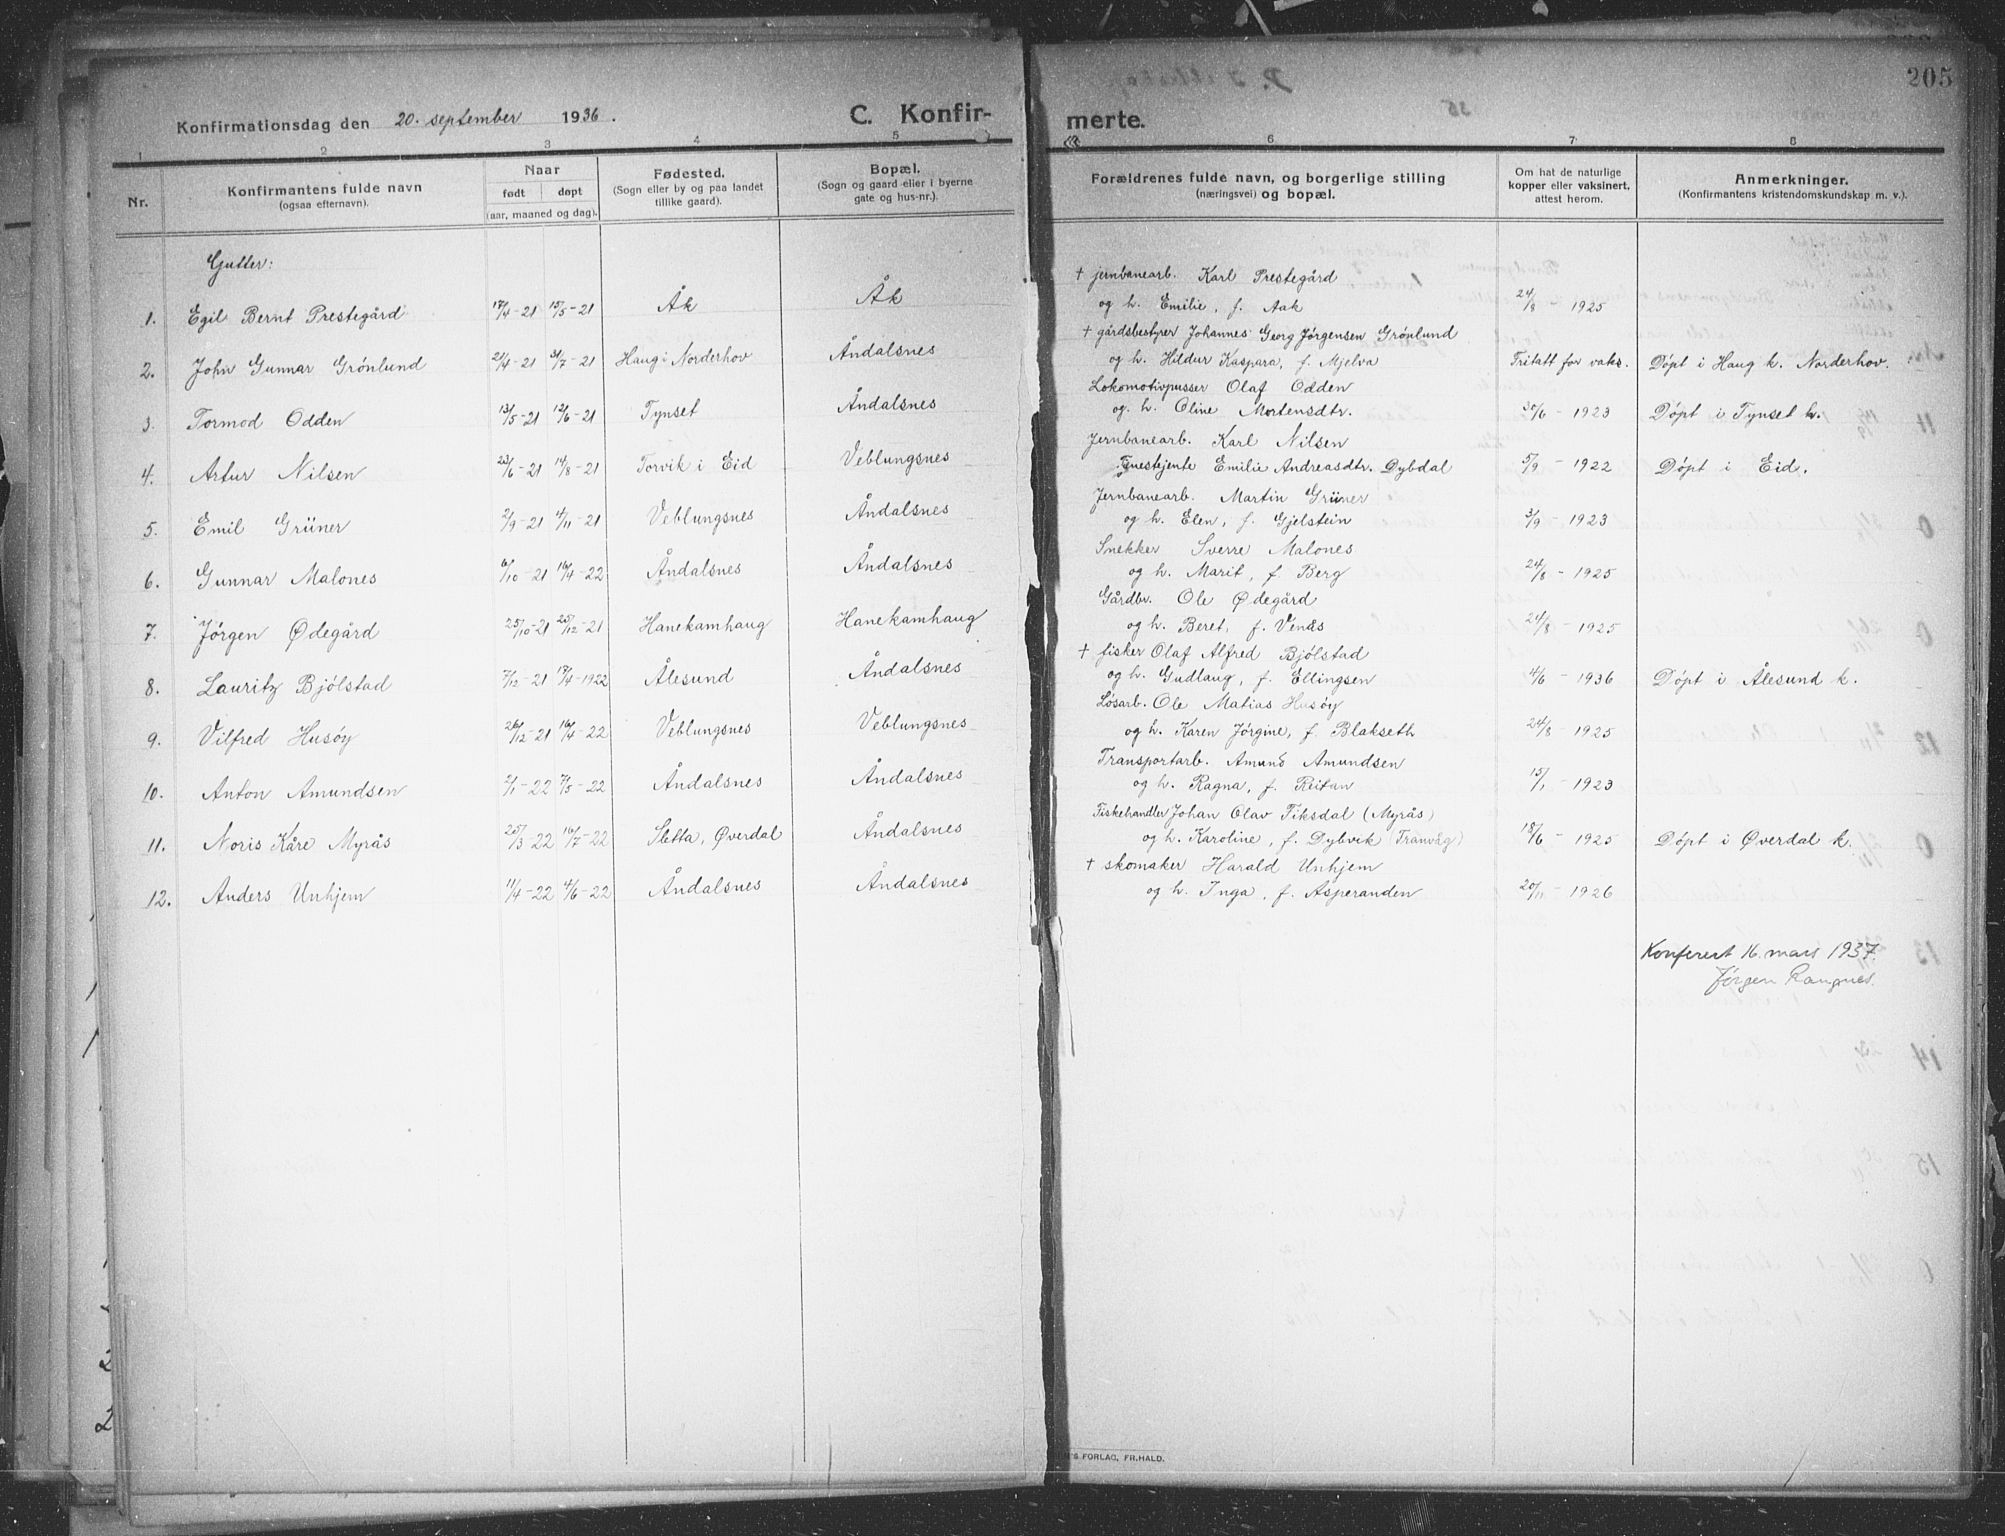 205
Konfirmationsdag den 20. september 1936. C. Konfir-
merte.
1 2 3 4 5
6 7 8
Nr. Konfirmantens fulde navn (ogsaa efternavn). Naar født døpt (aar, maaned og dag). Fødested. (Sogn eller by og paa landet tillike gaard). Bopæl. (Sogn og gaard eller i byerne gate og hus-nr.).
Forældrenes fulde navn, og borgerlige stilling (næringsvei) og bopæl. Om hat de naturlige kopper eller vaksinert, attest herom. Anmerkninger. (Konfirmantens kristendomskundskap m. v.).
Gutter:
† jernbanearb. Karl Prestegård
1. Egil Bernt Prestegård 17/4-21 15/5-21 Åk Åk og h. Emilie, f. Aak 24/8 - 1925
† gårdsbestyrer Johannes Georg Jørgensen Grønlund
2. John Gunnar Grönlund 21/4-21 31/7-21 Haug i Norderhov Åndalsnes og h. Hildur Kaspara, f. Mjelva Fritatt for vaks. Døpt i Haug k. Norderhov.
Lokomotivpusser Olaf Odden
3. Tormod Odden 13/5-21 12/6-21 Tynset Åndalsnes og h. Oline Mortensdtr. 30/6 - 1923 Døpt i Tynset k.
Jernbanearb. Karl Nilsen
4. Artur Nilsen 23/6-21 14/8-21 Torvik i Eid Veblungsnes Tjenestejente Emilie Andreasdtr. Dybdal 5/9 - 1922 Døpt i Eid.
Jernbanearb. Martin Grüner
5. Emil Grüner 2/9-21 4/11-21 Veblungsnes Åndalsnes og h. Elen, f. Gjelstein 3/9 - 1923
Snekker Sverre Malones
6. Gunnar Malones 6/10-21 16/4-22 Åndalsnes Åndalsnes og h. Marit, f. Berg 24/8 - 1925
Gårdbr. Ole Ødegård
7. Jørgen Ødegård 25/10-21 25/12-21 Hanekamhaug Hanekamhaug og h. Beret, f. Venås 24/8 - 1925
† fisker Olaf Alfred Bjølstad
8. Lauritz Bjölstad 7/12-21 17/4-1922 Ålesund Åndalsnes og h. Gudlaug, f. Ellingsen 4/6 - 1936 Døpt i Ålesund k.
Løsarb. Ole Matias Husøy
9. Vilfred Husøy 26/12-21 16/4-22 Veblungsnes Veblungsnes og h. Karen Jørgine, f. Blakseth 24/8 - 1925
Transportarb. Amund Amundsen
10. Anton Amundsen 2/1-22 7/5-22 Åndalsnes Åndalsnes og h. Ragna, f. Reitan 15/1 - 1923
Fiskehandler Johan Olav Fiksdal (Myrås)
11. Noris Kåre Myrås 25/3-22 16/7-22 Sletta, Øverdal Åndalsnes og h. Karoline, f. Dybvik (Tranvåg) 18/6 - 1925 Døpt i Øverdal k.
† skomaker Harald Unhjem
12. Anders Unhjem 11/4-22 4/6-22 Åndalsnes Åndalsnes og h. Inga, f. Asperanden 20/11 - 1926
Konferert 16. mars 1937.
Jørgen Rangnes.
'S FORLAG, FR. HALD.